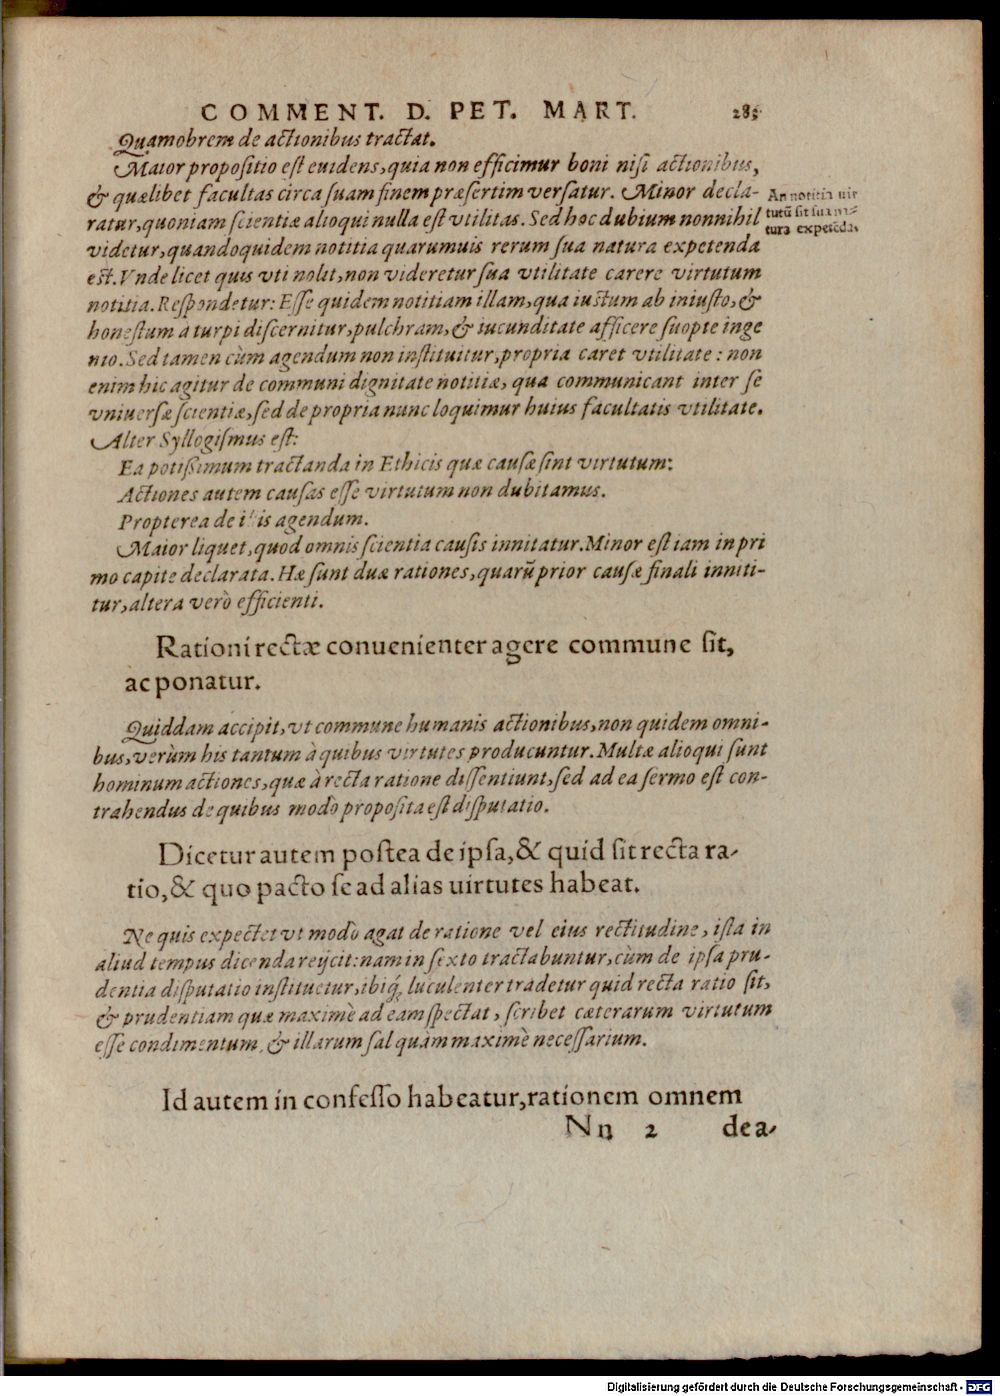 COMMENT. D. PET. MART. 283
Quamobrem de actionibus tractat.
Maior propositio est euidens, quia non efficimur boni nisi actionibus,
& quælibet facultas circa suam finem præsertim versatur. Minor decla-
ratur, quoniam scientiæ alioqui nulla est vtilitas. Sed hoc dubium nonnihil
videtur, quandoquidem notitia quarumuis rerum sua natura expetenda
est. Vnde licet quis vti nolit, non videretur sua vtilitate carere virtutum
notitia. Respondetur: Esse quidem notitiam illam, qua iustum ab iniusto, &
honestum à turpi discernitur, pulchram, & iucunditate afficere suopte inge
nio. Sed tamen cùm agendum non instituitur, propria caret vtilitate: non
enim hic agitur de communi dignitate notitiæ, qua communicant inter se
vniuersæ scientiæ, sed de propria nunc loquimur huius facultatis vtilitate.
Alter Syllogismus est:
Ea potissimum tractanda in Ethicis quæ causæ sint virtutum:
Actiones autem causas esse virtutum non dubitamus.
Propterea de illis agendum.
Maior liquet, quod omnis scientia causis innitatur. Minor est iam in pri
mo capite declarata. Hæ sunt duæ rationes, quarũ prior causæ finali inniti-
tur, altera verò efficienti.
An notitia uir
tutũ sit sua na-
tura expetēda.
Rationi rectæ conuenienter agere commune sit,
ac ponatur.
Quiddam accipit, vt commune humanis actionibus, non quidem omni-
bus, verùm his tantum à quibus virtutes producuntur. Multæ alioqui sunt
hominum actiones, quæ à recta ratione dissentiunt, sed ad ea sermo est con-
trahendus de quibus modò proposita est disputatio.
Dicetur autem postea de ipsa, & quid sit recta ra-
tio, & quo pacto se ad alias uirtutes habeat.
Ne quis expectet vt modò agat de ratione vel eius rectitudine, ista in
aliud tempus dicenda reijcit: nam in sexto tractabuntur, cùm de ipsa pru-
dentia disputatio instituetur, ibiq́; luculenter tradetur quid recta ratio sit,
& prudentiam quæ maximè ad eam spectat, scribet cæterarum virtutum
esse condimentum, & illarum sal quàm maximè necessarium.
Id autem in confesso habeatur, rationem omnem
Nn 2 dea-
Digitalisierung gefördert durch die Deutsche Forschungsgemeinschaft - DFG